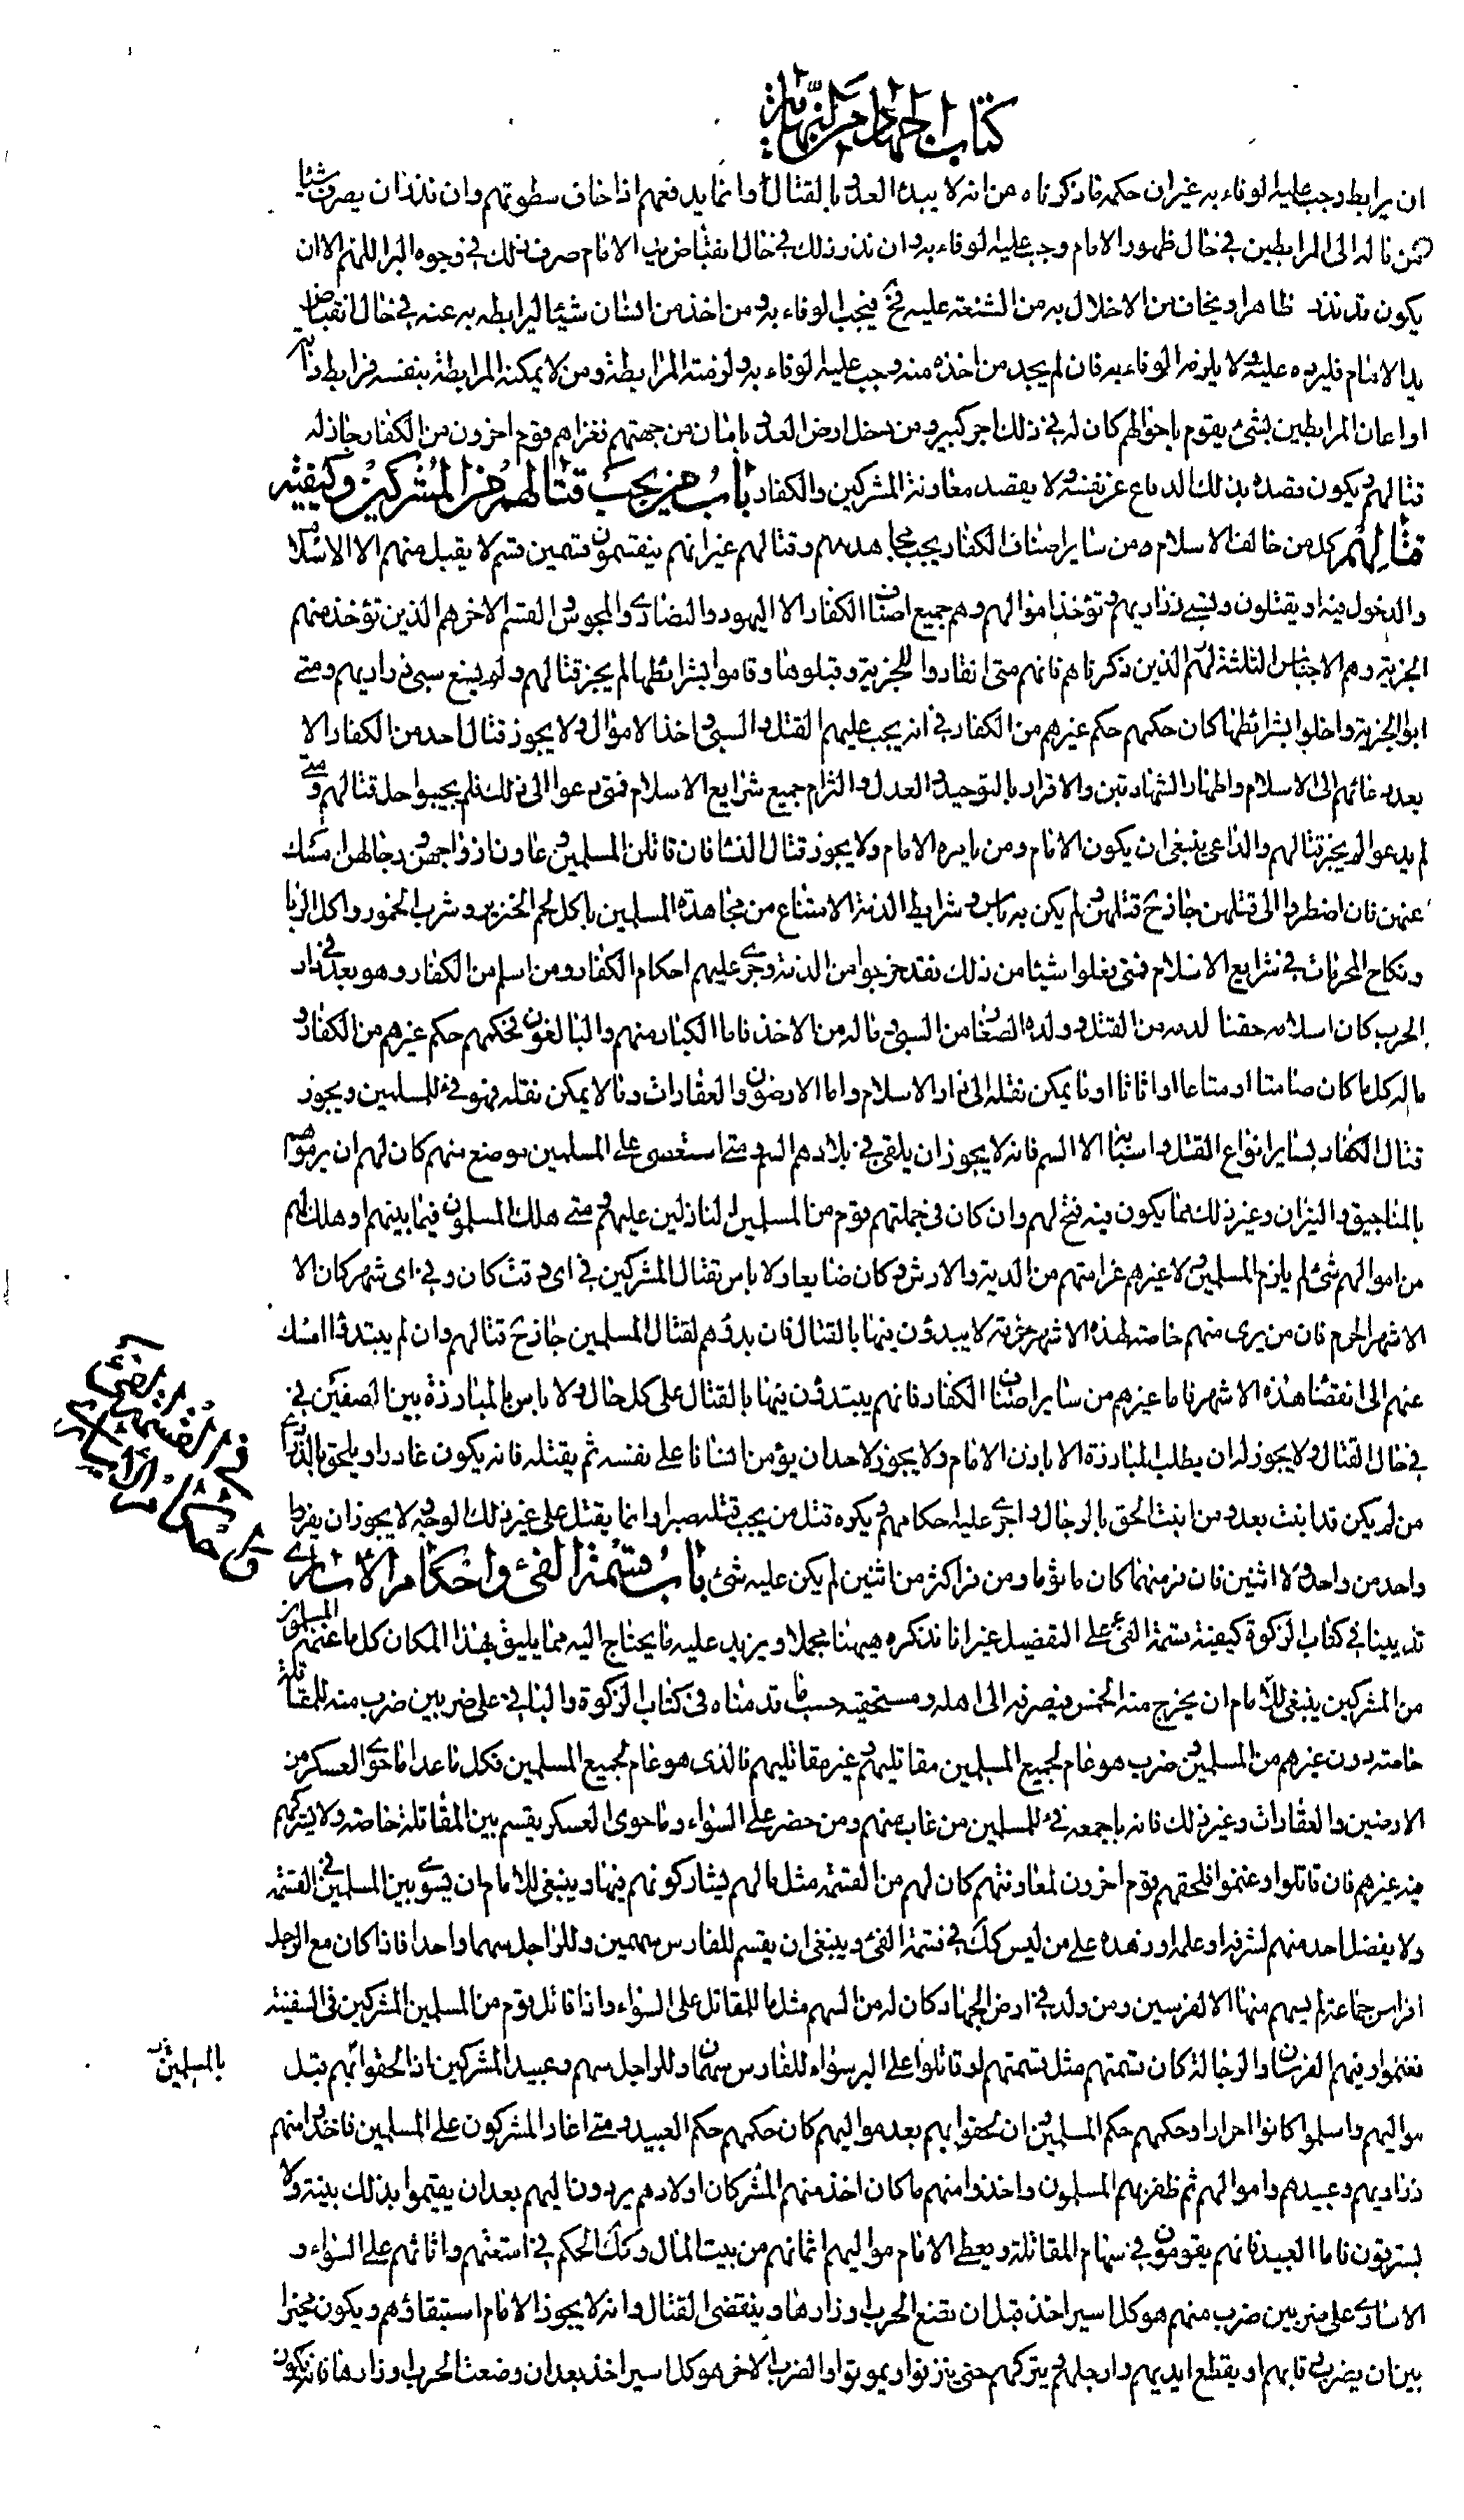 كتاب الجهاد من النهاية
ان يرابط وجب عليه الوفاء به غير ان حكمه ما ذكرناه من انه لا يبدء العدو بالقتال وانما يدفعهم اذا خاف سطوتهم وان نذر ان يصرف شيئا
من ماله الى المرابطين في حال ظهور الامام وجب عليه الوفاء به وان نذر ذلك في حال انقباض يد الامام صرف ذلك في وجوه البر اللهم الا ان
يكون قد نذر ظاهرا ويخاف من الاخلال به من الشنعة عليه فح فيجب الوفاء به ومن اخذ من انسان شيئا ليرابط به عنه في حال انقباض
يد الامام فليرده عليه ولا يلزمه الوفاء به فان لم يجد من اخذه منه وجب عليه الوفاء به ولزمته المرابطة ومن لا يمكنه المرابطة بنفسه فرابط دابة
او اعان المرابطين بشئ يقوم باحوالهم كان له في ذلك اجر كبير ومن دخل ارض العدو بامان من جهتهم فغزاهم قوم اخرون من الكفار جاز له
قتالهم ويكون قصده بذلك الدفاع عن نفسه ولا يقصد معاونة المشركين والكفار باب من يجب قتالهم من المشركين وكيفية
قتالهم كل من خالف الاسلام من ساير اصناف الكفار يجب مجاهدتهم وقتالهم غير انهم ينقسمون قسمين قسم لا يقبل منهم الا الاسلام
والدخول فيه او يقتلون وتسبى ذراريهم وتؤخذ اموالهم وهم جميع اصناف الكفار الا اليهود والنصارى والمجوس والقسم الاخر هم الذين تؤخذ منهم
الجزية وهم الاجناس الثلثة الذين ذكرناهم فانهم متى انقادوا للجزية وقبلوها وقاموا بشرائطها لم يجز قتالهم ولم يسغ سبى ذراريهم ومتى
ابوا الجزية واخلوا بشرائطها كان حكمهم حكم غيرهم من الكفار في انه يجب عليهم القتل والسبى واخذ الاموال ولا يجوز قتال احد من الكفار الا
بعد دعائهم الى الاسلام واظهار الشهادتين والاقرار بالتوحيد والعدل والتزام جميع شرايع الاسلام فمتى دعوا الى ذلك فلم يجيبوا حل قتالهم ومتى
لم يدعوا لم يجز قتالهم والداعى ينبغى ان يكون الامام ومن يامره الامام ولا يجوز قتال النساء فان قاتلن المسلمين وعاون ازواجهن ورجالهن امسك
عنهن فان اضطروا الى قتلهن جاز ح قتلهن ولم يكن به باس وشرايط الذمة الامتناع من مجاهدة المسلمين باكل لحم الخنزير وشرب الخمور واكل الربا
ونكاح المحرمات في شرايع الاسلام فمتى فعلوا شيئا من ذلك فقد خرجوا من الذمة وجرى عليهم احكام الكفار ومن اسلم من الكفار وهو بعد في دار
الحرب كان اسلامه حقنا لدمه من القتل وولده الصغار من السبى وماله من الاخذ فاما الكبار منهم والبالغون فحكمهم حكم غيرهم من الكفار و
ماله كل ما كان صامتا او متاعا او اثاثا او ما يمكن نقله الى دار الاسلام واما الارضون والعقارات وما لا يمكن نقله فهو فئ للمسلمين ويجوز
قتال الكفار بساير انواع القتل واسبابه الا السم فانه لا يجوز ان يلقى في بلادهم السم ومتى استعصى على المسلمين موضع منهم كان لهم ان يرموهم
بالمناجيق والنيران وغير ذلك مما يكون فيه فتح لهم وان كان في جملتهم قوم من المسلمين النازلين عليهم ومتى هلك المسلمون فيما بينهم او هلك لهم
من اموالهم شئ لم يلزم المسلمين ولا غيرهم غرامتهم من الدية والارش وكان ضايعا ولا باس بقتال المشركين في اى وقت كان وفي اى شهر كان الا
الاشهر الحرم فان من يرى منهم خاصة لهذه الاشهر حرمة لا يبدؤن فيها بالقتال فان بدؤهم لقتال المسلمين جاز ح قتالهم وان لم يبتدؤا امسك
عنهم الى انقضاء هذه الاشهر فاما غيرهم من ساير اصناف الكفار فانهم يبتدؤن فيها بالقتال على كل حال ولا باس بالمبارزة بين الصفين في
في حال القتال ولا يجوز له ان يطلب المبارزة الا باذن الامام ولا يجوز لاحد ان يؤمن انسانا على نفسه ثم يقتله فانه يكون غادرا ويلحق بالذرارى
من لم يكن قد انبت بعد ومن انبت الحق بالرجال واجرى عليه احكامهم ويكره قتل من يجب قتله صبرا وانما يقتل على غير ذلك الوجه ولا يجوز ان يفر
واحد من واحد ولا اثنين فان فر منهما كان ماثوما ومن فر اكثر من اثنين لم يكن عليه شئ باب قسمة الفئ واحكام الاسارى
قد بينا في كتاب الزكوة كيفية قسمة الفئ على التفصيل غير انا نذكره هيهنا مجملا ويزيد عليه ما يحتاج اليه مما يليق بهذا المكان كل ما غنمه المسلمون
من المشركين ينبغى للامام ان يخرج منه الخمس فيصرفه الى اهله ومستحقيه حسب ما قدمناه في كتاب الزكوة والباقي على ضربين ضرب منه للمقاتلة
خاصة دون غيرهم من المسلمين وضرب هو عام لجميع المسلمين مقاتليهم وغير مقاتليهم فالذى هو عام لجميع المسلمين فكل ما عدا ما حوى العسكر من
الارضين والعقارات وغير ذلك فانه باجمعه فئ للمسلمين من غاب منهم ومن حضر على السواء وما حوى العسكر يقسم بين المقاتلة خاصة ولا يشركهم
فيه غيرهم فان قاتلوا وغنموا فلحقهم قوم اخرون لمعاونتهم كان لهم من القسمة مثل ما لهم يشاركونهم فيها وينبغى للامام ان يسوى بين المسلمين في القسمة
ولا يفضل احد منهم لشرفه او علمه او زهده على من ليس كك في قسمة الفئ وينبغى ان يقسم للفارس سهمين وللراجل سهما واحدا فاذا كان مع الرجل
افراس جماعة لم يسهم منها الا لفرسين ومن ولد في ارض الجهاد كان له من السهم مثل ما للمقاتل على السواء واذا قاتل قوم من المسلمين المشركين في السفينة
فغنموا وفيهم الفرسان والرجالة كان قسمتهم مثل قسمتهم لو قاتلوا على البر سواء للفارس سهمان وللراجل سهم وعبيد المشركين اذا لحقوا بهم قبل
بالمسلمين
مواليهم واسلموا كانوا احرارا وحكمهم حكم المسلمين وان لحقوا بهم بعد مواليهم كان حكمهم حكم العبيد ومتى اغار المشركون على المسلمين فاخذوا منهم
ذراريهم وعبيدهم واموالهم ثم ظفر بهم المسلمون واخذوا منهم ما كان اخذ منهم المشركان اولادهم يردون اليهم بعد ان يقيموا بذلك بينة ولا
يسترقون فاما العبيد فانهم يقومون في سهام المقاتلة ويعطى الامام مواليهم اثمانهم من بيت المال وكك الحكم في امتعتهم واثاثهم على السواء و
الاسارى على ضربين ضرب منهم هو كل اسير اخذ قبل ان تضع الحرب اوزارها وينقضى القتال وانه لا يجوز للامام استبقاؤهم ويكون مخيرا
بين ان يضرب رقابهم او يقطع ايديهم وارجلهم ويتركهم حتى ينزفوا ويموتوا والضرب الاخر هو كل اسير اخذ بعد ان وضعت الحرب اوزارها فانه يكون